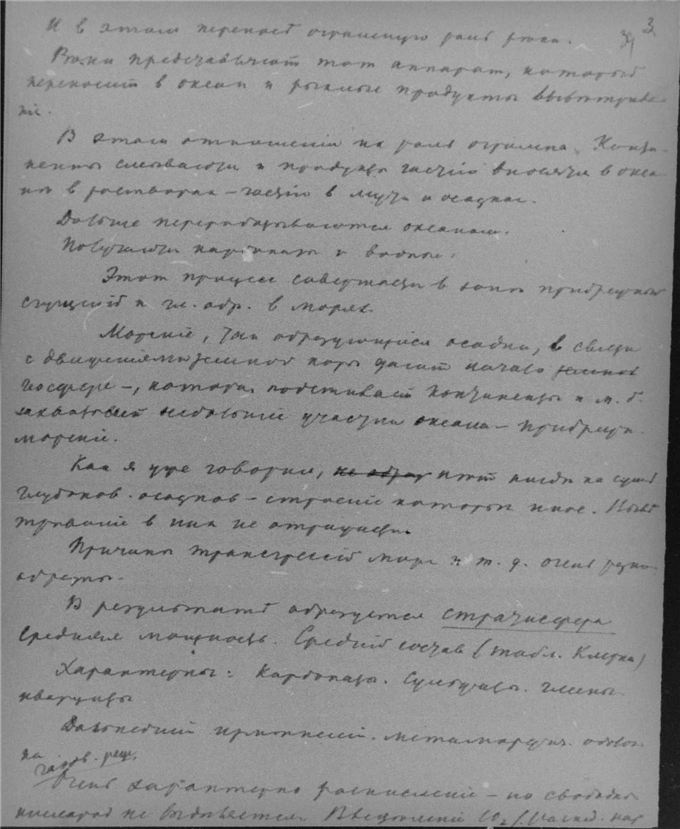 3
И в этом переносе огромную роль реки.
Волны представляют тот аппарат, который
переносит в океан и рыхлые продукты выветрива-
ния.
В этом отношении их роль огромна. Конти-
ненты смываются и продукты частию вносятся в океа-
ны в растворах – частию в мути и осадках.
Дальше перерабатываются океаном.
Получаются карбонаты и водные
Этот процесс совершается в зоне прибрежной
и гл. обр. в морях.
Морские, там образующиеся осадки, в связи
с движениями земной коры дают начало
геосфере –, которая подстилает континенты и м. б.
захватывает небольшие участки океана – прибрежн.
морские.
Как я уже говорил, нет нигде на суше
глубоков. осадков – строение которых иное. Вывет-
тривание в них не
Причины трансгрессий моря и т. д. очень разно-
образны.
В результате образуется стратисфера
Средняя мощность. Средний состав (табл. Кларка)
Характерны: Карбонаты. Сульфаты. глины
кварциты
Дальнейшие изменения. Метаморфич.
на
Очень характерно расщепление – но свободный
кислород не выделяется. Выделение CO₂